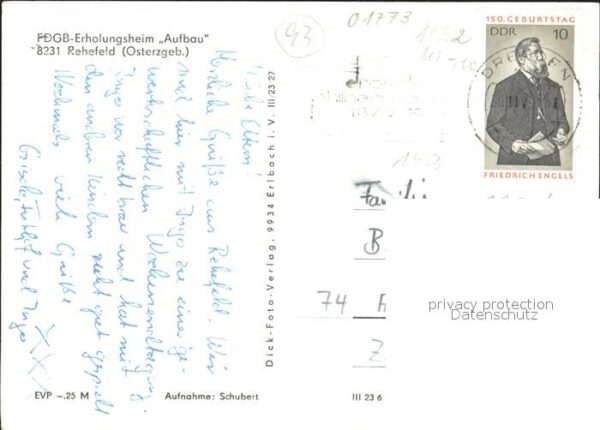 FDGB-Erholungsheim „Aufbau"
8231 Rehefeld (Osterzgeb.)
Liebe Eltern!
Herzliche Grüße aus Rehefeld. Wir
sind hier mit Ingo zu einer ge-
werkschaftlichen Wochenendtagung.
Ingo war recht brav und hat mit
den anderen Kindern sehr gut gespielt
Nochmals viele Grüße
Gisela, und Ingo
XXX
EVP –.25 M
Aufnahme: Schubert
III 23 6
Dick-Foto-Verlag, 9934 Erlbach i. V. III 23 27
93
01773
150. GEBURTSTAG
DDR 10
FRIEDRICH ENGELS
DRESDEN
1403
Famili
B
74
privacy protection
Datenschutz